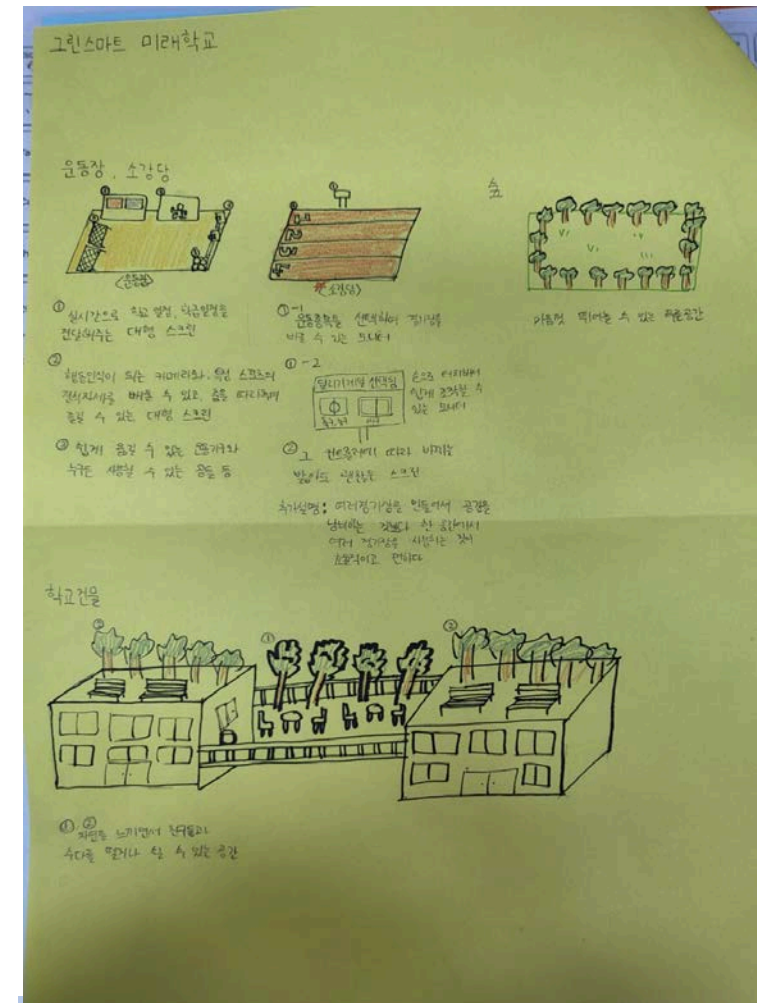 그린스마트 미래학교
운동장, 소강당
숲
<운동장>
<소강당>
① 실시간으로 학교 일정, 학급일정을
전달해주는 대형 스크린
②
행동인식이 되는 카메라와, 특정 스포츠의
전석자세를 배울 수 있고, 춤을 따라하며
즐길 수 있는 대형 스크린
③ 쉽게 옮길 수 있는 운동기구와
누구든 사용할 수 있는 공들 등
①-1
운동종목을 선택하여 경기장을
바꿀 수 있는 모니터
①-2
달리기계열 선택됨
손으로 터치하여
쉽게 조작할 수
있는 모니터
② 그 운동종목에 따라 바뀌는
밟아도 괜찮은 스크린
추가설명: 여러경기장을 만들어서 공간을
낭비하는 것보다 한 공간에서
여러 경기장을 사용하는 것이
효율적이고 편하다
마음껏 뛰어놀 수 있는 공간
학교건물
② ① ②
①, ②
자연을 느끼면서 친구들과
수다를 떨거나 쉴 수 있는 공간